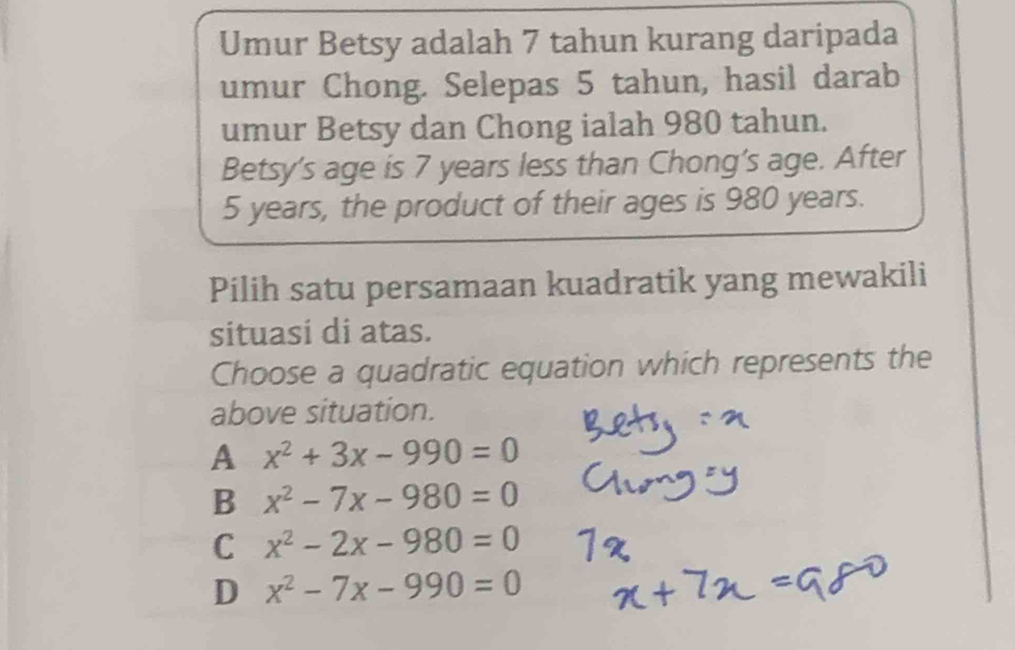 Umur Betsy adalah 7 tahun kurang daripada
umur Chong. Selepas 5 tahun, hasil darab
umur Betsy dan Chong ialah 980 tahun.
Betsy's age is 7 years less than Chong's age. After
5 years, the product of their ages is 980 years.
Pilih satu persamaan kuadratik yang mewakili
situasi di atas.
Choose a quadratic equation which represents the
above situation.
A x² + 3x – 990 = 0
B x² – 7x – 980 = 0
C x² – 2x – 980 = 0
D x² – 7x – 990 = 0
Betsy = x
Chong = y
7x
x + 7x = 980